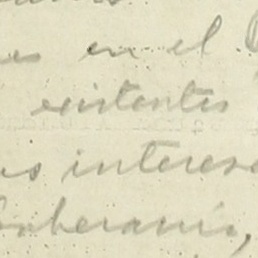 en el
existentes
interese
soberanía,